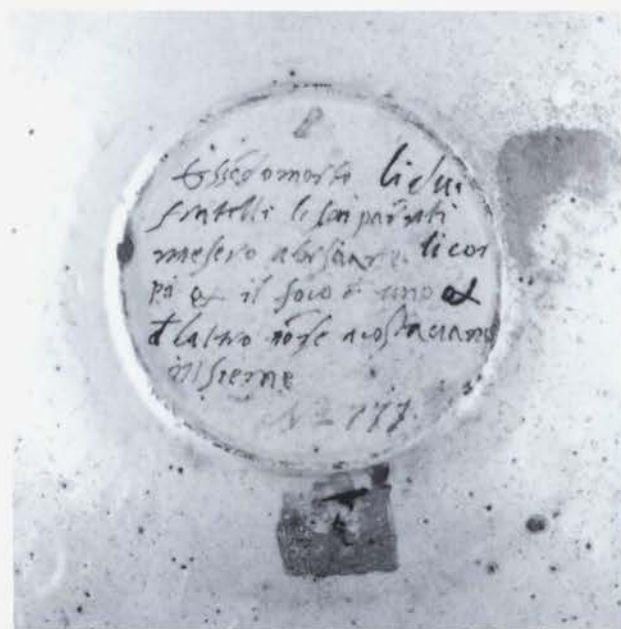 Essedo morto li dui
fratelli li soi parẽti
mesero abrsiare li cor
pi & il foco d uno &
d laltro nõ se acostaciano
insieme
Nº 777.